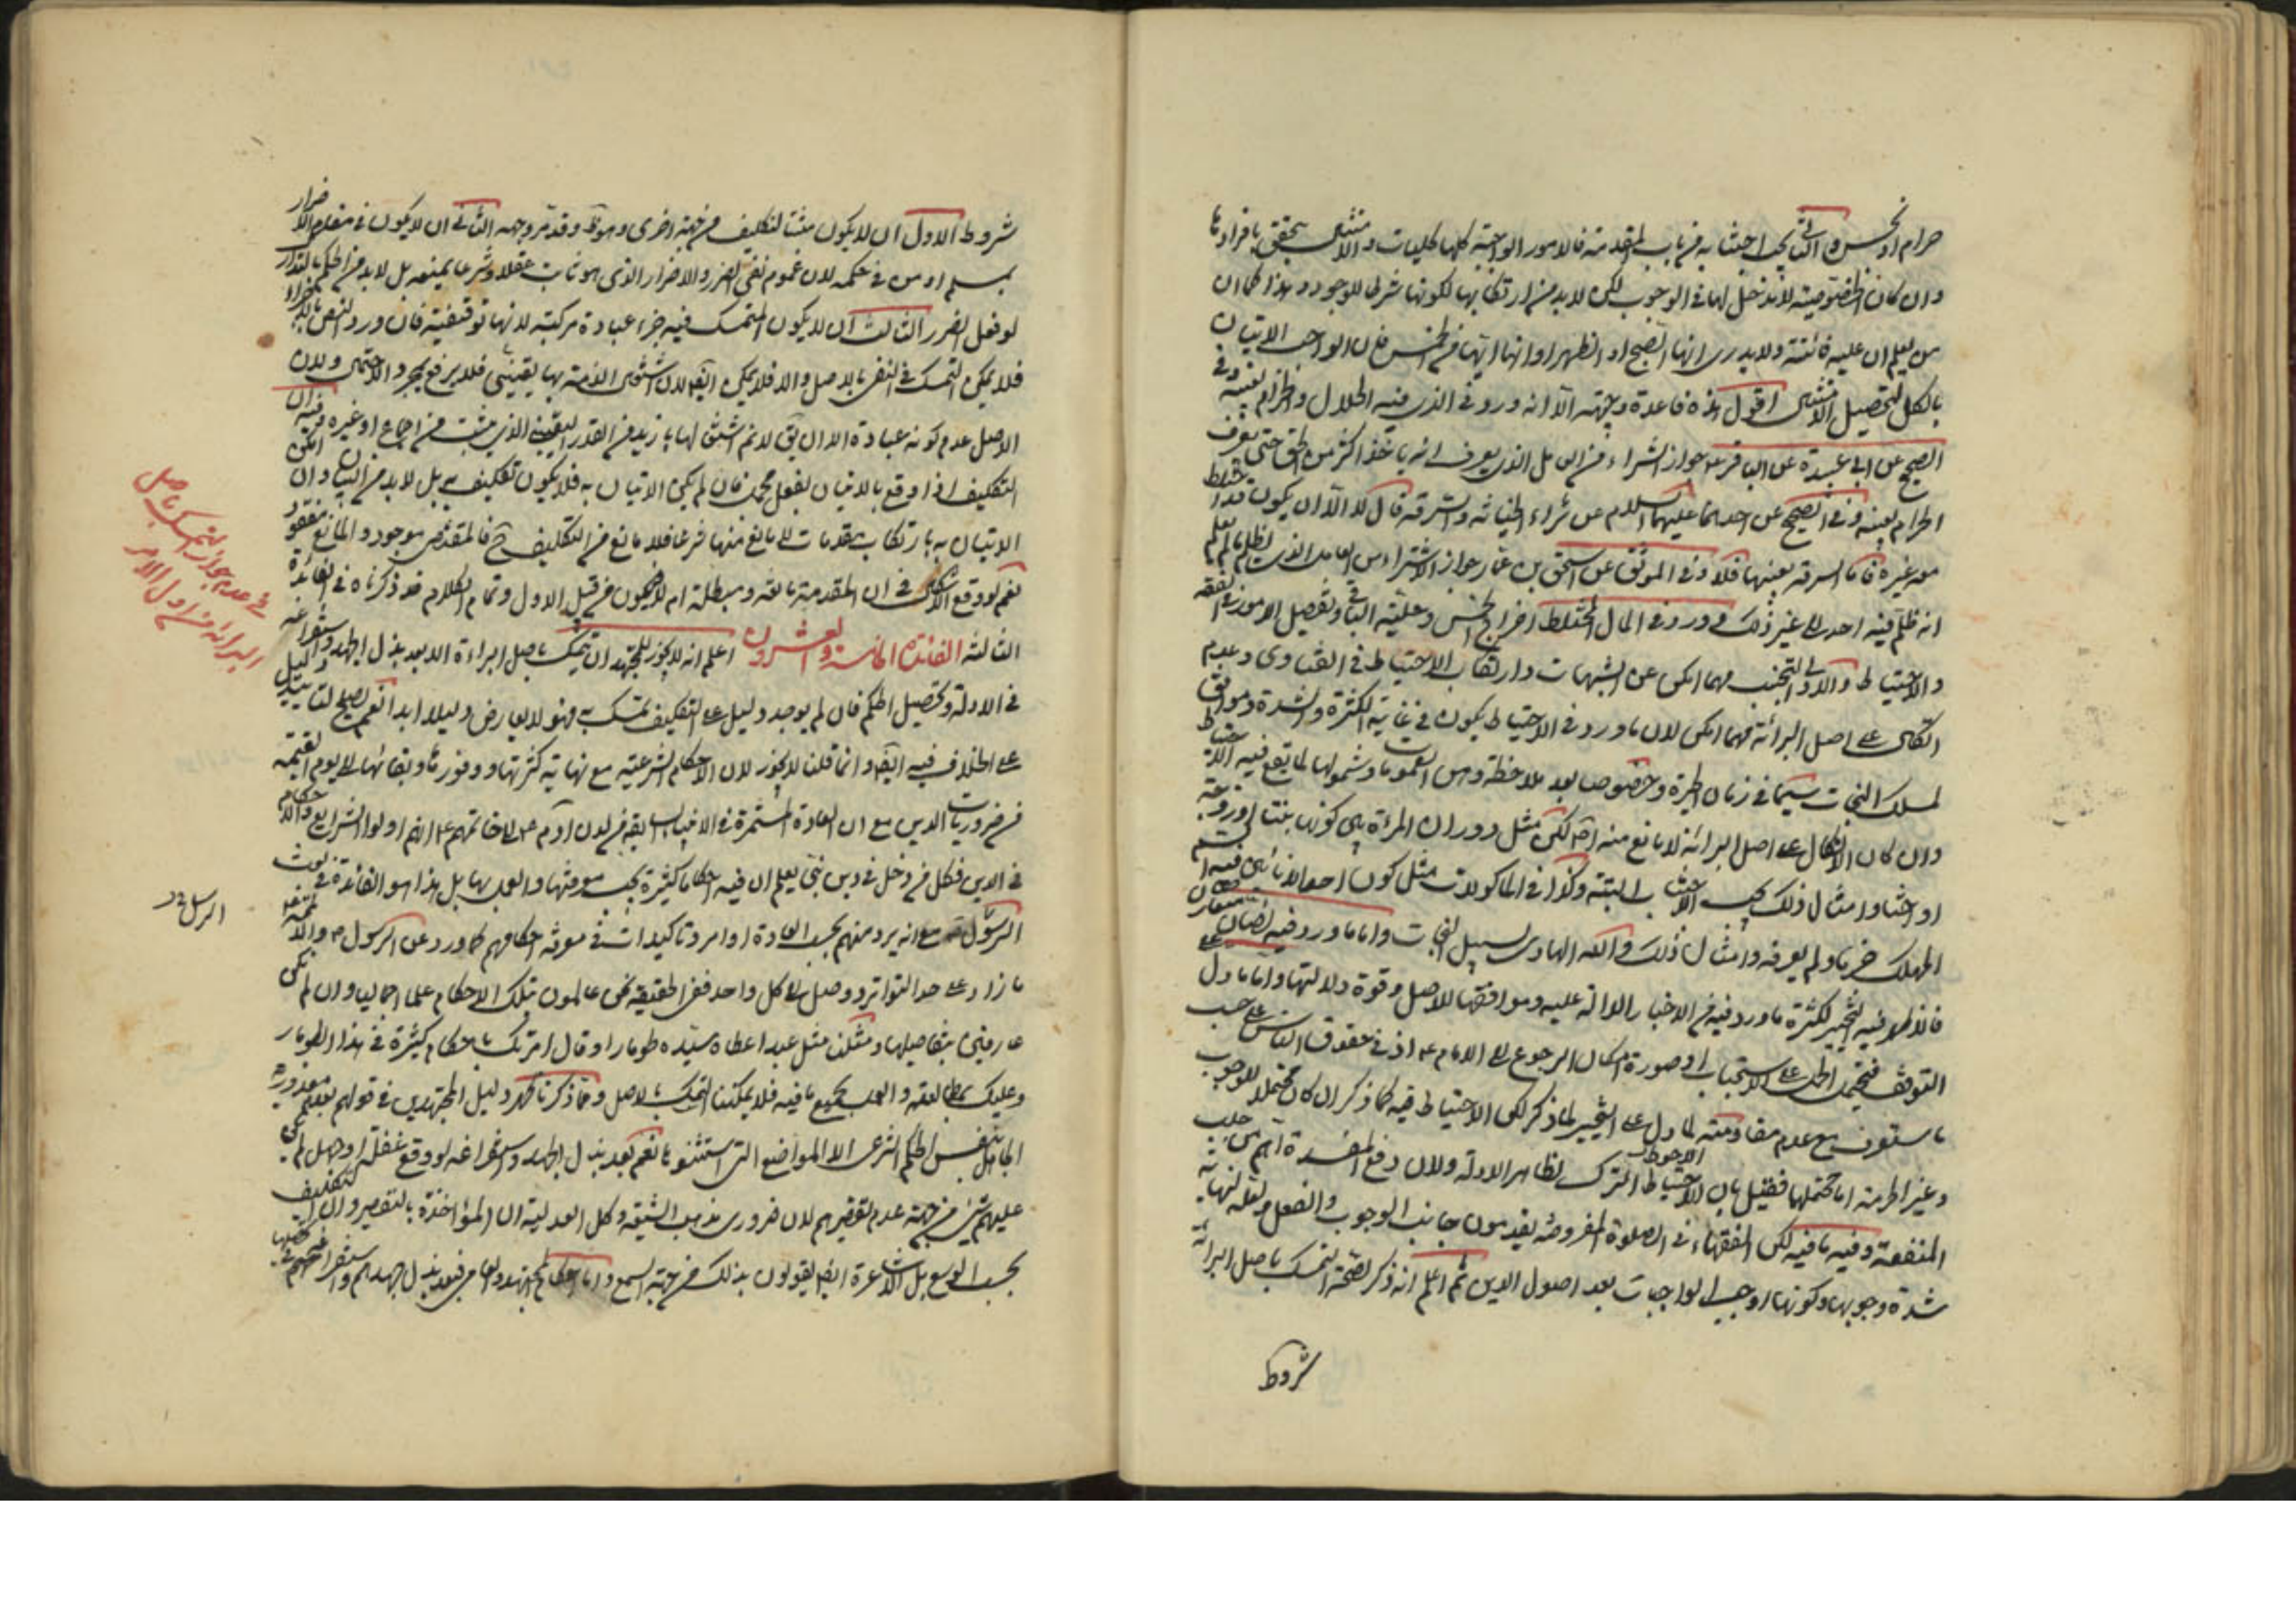 حرام او نجس والثانى يجب اجتنابه من باب المقدمة فالامور الواجبة كلها كليات والامتثال يتحقق بافرادها
وان كان الخصوصية لا مدخل لها فى الوجوب لكن لا بد من ارتكابها لكونها شرطا للوجود وهذا كما ان
من يعلم ان عليه فائتة ولا يدرى انها الصبح او الظهر او انها ايتها من الخمس فان الواجب الاتيان
بالكل لتحصيل الامتثال اقول هذه قاعدة وجيهة الا انه ورد فى الذى فيه الحلال والحرام بعينه وفى
الصحيح عن ابى عبيدة عن الباقر ع جواز الشراء من العامل الذى يعرف انه ياخذ اكثر من الحق حتى يعرف
الحرام بعينه وفى الصحيح عن احدهما عليهما السلام عن شراء الخيانة والسرقة قال لا الا ان يكون قد اختلط
معه غيره فاما السرقة بعينها فلا وفى الموثق عن اسحق بن عمار جواز الاشتراء من العامل الذى يظلم ما لم يعلم
انه ظلم فيه احدا الى غير ذلك وورد فى المال المختلط اخراج الخمس وحلية الباقى وتفصيل الامور فى الفقه
والاحتياط والاولى التجنب مهما امكن عن الشبهات وارتكاب الاحتياط فى الفتاوى وعدم
اتكال على اصل البرائة مهما امكن لان ما ورد فى الاحتياط يكون فى غاية الكثرة والشدة وموافق
لمسلك النجات سيما فى زمان الحيرة وخصوصا بعد ملاحظة العمومات وشمولها لما يقع فيه الاحتياط
وان كان الاتكال على اصل البرائة لا مانع منه لكن مثل دوران المرءة بين كونها بنتا او زوجة
او اختا وامثال ذلك يجب الاجتناب البتة وكذا فى الماكولات مثل كون احد الانائين فيه السم
المهلك خربا ولم يعرفه وامثال ذلك والله الهادى لسبيل النجات واما ما ورد فيه نصان متعارضان
فالاظهر فيه التخيير لكثرة ما ورد فيه من الاخبار الدالة عليه وموافقتها للاصل وقوة دلالتها واما ما دل على
التوقف فيحتمل الحمل على الاستحباب او صورة امكان الرجوع الى الامام ع او فى حقوق الناس على حسب
ما ستعرف مع عدم مقاومته لما دل على التخيير لما ذكر لكن الاحتياط فيه كما ذكر ان كان محتملا للوجوب
وغير الحرمة اما محتملها فقيل بان الاحتياط الاحوط الترك لظاهر الادلة ولان دفع المفسدة اهم من جلب
المنفعة وفيه ما فيه لكن الفقهاء فى الصلوة المفروضة يقدمون جانب الوجوب والفعل ولعله لنهاية
شدة وجوبها وكونها اوجب الواجبات بعد اصول الدين ثم اعلم انه ذكر لصحة التمسك باصل البرائة
شروط
شروط الاول ان لا يكون مثبتا لتكليف من جهة اخرى وهو ظ وقد مر وجهه الثانى ان لا يكون فى مقام الاضرار
بمسلم او من فى حكمه لان عموم نفى الضرر والاضرار الذى هو ثابت عقلا وشرعا يمنعه بل لا بد من الحكم بالتدارك
لو فعل الضرر الثالث ان لا يكون المتمسك فيه جزء عبادة مركبة لانها توقيفية فان ورد النص
فلا يمكن التمسك فى النفى بالاصل والا فلا يمكن ايضا لان اشتغال الذمة بها يقينى فلا يرفع بمجرد الاحتمال ولان
الاصل عدم كونه عبادة الا ان يق لا نم اشتغالها بازيد من القدر اليقينى الذى يثبت من اجماع او غيره وفيه ان
التكليف اذا وقع بالاتيان بفعل مجمل فان لم يمكن الاتيان به فلا يكون تكليف به بل لا بد من البيان وان امكن
الاتيان به بارتكاب مقدمات لا مانع منها شرعا فلا مانع من التكليف ح فالمقتضى موجود والمانع مفقود
نعم لو وقع الاشكال فى ان المقدمة مانعة ومبطلة ام لا فيكون من قبيل الاول وتمام الكلام قد ذكرناه فى الفائدة
الثالثة الفائدة الخامسة والعشرون اعلم انه لا يجوز للمجتهد ان يتمسك باصل البراءة الا بعد بذل الجهد واستفراغه
فى الادلة وتحصيل الحكم فان لم يوجد دليل على التكليف يتمسك به فهو لا يعارض دليلا ابدا نعم يصلح لتاييد الدليل
على الخلاف فيه ايضا وانما قلنا لا يجوز لان الاحكام الشرعية مع نهاية كثرتها ووفورها وبقائها الى يوم القيمة
من ضروريات الدين مع ان العادة المستمرة فى الانبياء السابقة من لدن آدم ع الى خاتمهم ع انهم اولوا الشرايع والاحكام
فى الدين فكل من دخل فى دين نبى يعلم ان فيه احكاما كثيرة يجب معرفتها والعمل بها بل هذا هو الفائدة فى بعث
الرسول مع انه يرد منهم بحسب العادة اوامر وتاكيدات فى معرفة احكامهم كما ورد عن الرسول ص والائمة ع
ما زاد على حد التواتر ووصل الى كل واحد ففى الحقيقة نحن عالمون بتلك الاحكام علما اجماليا وان لم نكن
عارفين بتفاصيلها ومثلنا مثل عبد اعطاه سيده طومارا وقال امرتك باحكام كثيرة فى هذا الطومار
وعليك بمطالعته والعمل بجميع ما فيه فلا يمكننا التمسك بالاصل ومما ذكرنا ظهر دليل المجتهدين فى قولهم بعدم معذورية
الجاهل بنفس الحكم الشرعى الا المواضع التى استثنوها نعم بعد بذل الجهد واستفراغه لو وقع غفلة او جهل لم يكن
عليهم شىء من جهة عدم تقصيرهم لان ضرورى مذهب الشيعة وكل العدلية ان المؤاخذة بالتقصير وان التكليف
بحسب الوسع بل الاشاعرة ايضا يقولون بذلك من جهة السمع واما حكم المجتهد والعامى فبعد بذل جهدهم واستفراغ وسعهم
فى عدم جواز التمسك باصل
البرائة من اول الامر
الرسل خ د